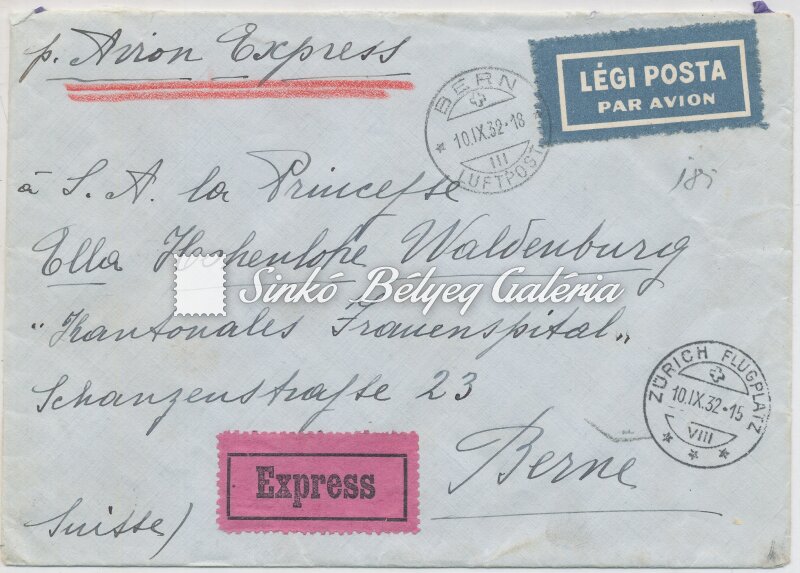 p. Avion Express
LÉGI POSTA
PAR AVION
BERN
10.IX.32-18
III
LUFTPOST
à S. A. la Princesse
Ella Hohenlohe Waldenburg
Sinkó Bélyeg Galéria
"Kantonales Frauenspital"
Schanzenstrasse 23
ZÜRICH FLUGPLATZ
10.IX.32-15
VIII
Express
Berne
Suisse)